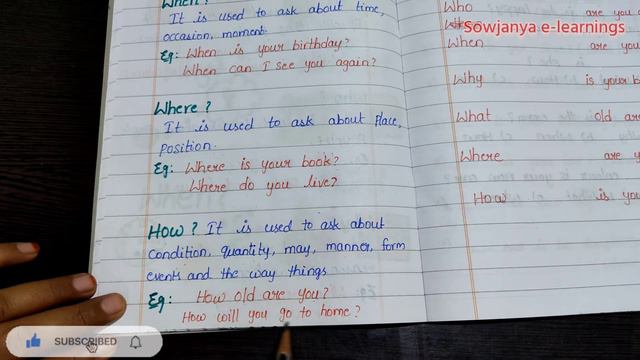 When?
It is used to ask about time,
occasion, moment.
Eg: When is your birthday?
When can I see you again?
Where?
It is used to ask about Place,
position.
Eg: Where is your book?
Where do you live?
How? It is used to ask about
condition, quantity, may, manner, form
events and the way things
Eg: How old are you?
How will you go to home?
Who are you
Sowjanya e-learnings
When are you
Why is your b
What old are
Where are y
How is you
SUBSCRIBED